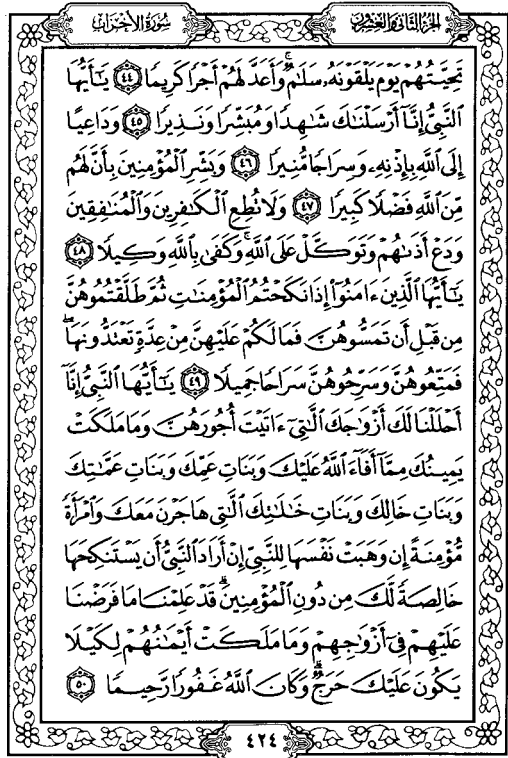 الجزء الثاني والعشرون
سورة الأحزاب
تَحِيَّتُهُمْ يَوْمَ يَلْقَوْنَهُۥ سَلَٰمٌۚ وَأَعَدَّ لَهُمْ أَجْرًا كَرِيمًا ٤٤ يَٰٓأَيُّهَا
ٱلنَّبِيُّ إِنَّآ أَرْسَلْنَٰكَ شَٰهِدًا وَمُبَشِّرًا وَنَذِيرًا ٤٥ وَدَاعِيًا
إِلَى ٱللَّهِ بِإِذْنِهِۦ وَسِرَاجًا مُّنِيرًا ٤٦ وَبَشِّرِ ٱلْمُؤْمِنِينَ بِأَنَّ لَهُم
مِّنَ ٱللَّهِ فَضْلًا كَبِيرًا ٤٧ وَلَا تُطِعِ ٱلْكَٰفِرِينَ وَٱلْمُنَٰفِقِينَ
وَدَعْ أَذَىٰهُمْ وَتَوَكَّلْ عَلَى ٱللَّهِۚ وَكَفَىٰ بِٱللَّهِ وَكِيلًا ٤٨
يَٰٓأَيُّهَا ٱلَّذِينَ ءَامَنُوٓا۟ إِذَا نَكَحْتُمُ ٱلْمُؤْمِنَٰتِ ثُمَّ طَلَّقْتُمُوهُنَّ
مِن قَبْلِ أَن تَمَسُّوهُنَّ فَمَا لَكُمْ عَلَيْهِنَّ مِنْ عِدَّةٍ تَعْتَدُّونَهَاۖ
فَمَتِّعُوهُنَّ وَسَرِّحُوهُنَّ سَرَاحًا جَمِيلًا ٤٩ يَٰٓأَيُّهَا ٱلنَّبِيُّ إِنَّآ
أَحْلَلْنَا لَكَ أَزْوَٰجَكَ ٱلَّٰتِيٓ ءَاتَيْتَ أُجُورَهُنَّ وَمَا مَلَكَتْ
يَمِينُكَ مِمَّآ أَفَآءَ ٱللَّهُ عَلَيْكَ وَبَنَاتِ عَمِّكَ وَبَنَاتِ عَمَّٰتِكَ
وَبَنَاتِ خَالِكَ وَبَنَاتِ خَٰلَٰتِكَ ٱلَّٰتِي هَاجَرْنَ مَعَكَ وَٱمْرَأَةً
مُّؤْمِنَةً إِن وَهَبَتْ نَفْسَهَا لِلنَّبِيِّ إِنْ أَرَادَ ٱلنَّبِيُّ أَن يَسْتَنكِحَهَا
خَالِصَةً لَّكَ مِن دُونِ ٱلْمُؤْمِنِينَۗ قَدْ عَلِمْنَا مَا فَرَضْنَا
عَلَيْهِمْ فِيٓ أَزْوَٰجِهِمْ وَمَا مَلَكَتْ أَيْمَٰنُهُمْ لِكَيْلَا
يَكُونَ عَلَيْكَ حَرَجٌۗ وَكَانَ ٱللَّهُ غَفُورًا رَّحِيمًا ٥٠
٤٢٤